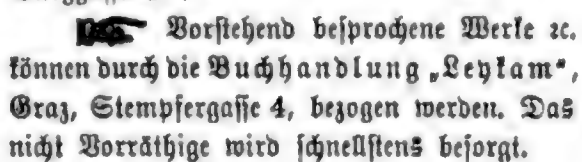 ☛ Vorstehend besprochene Werke ꝛc.
können durch die Buchhandlung „Leykam“,
Graz, Stempfergasse 4, bezogen werden. Das
nicht Vorräthige wird schnellstens besorgt.